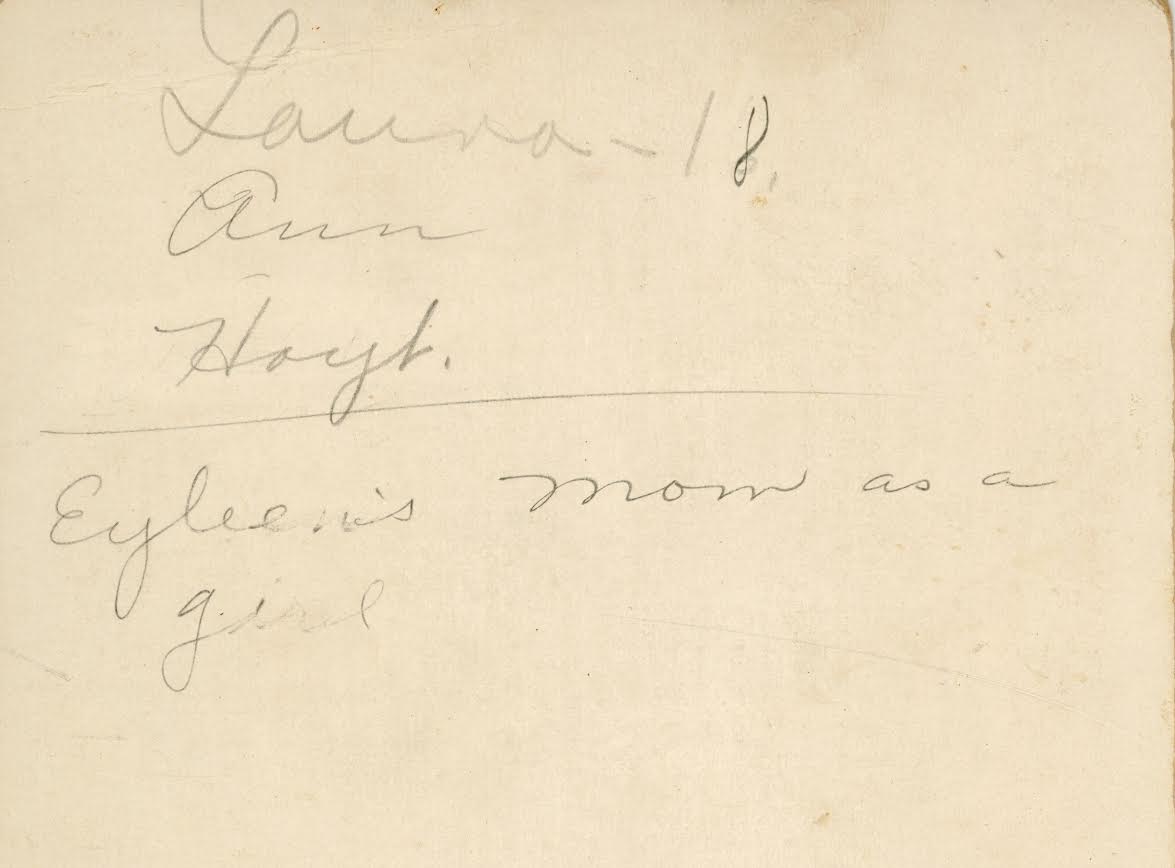 Laura - 18.
Ann
Hoyt.
Eyleen's mom as a
girl